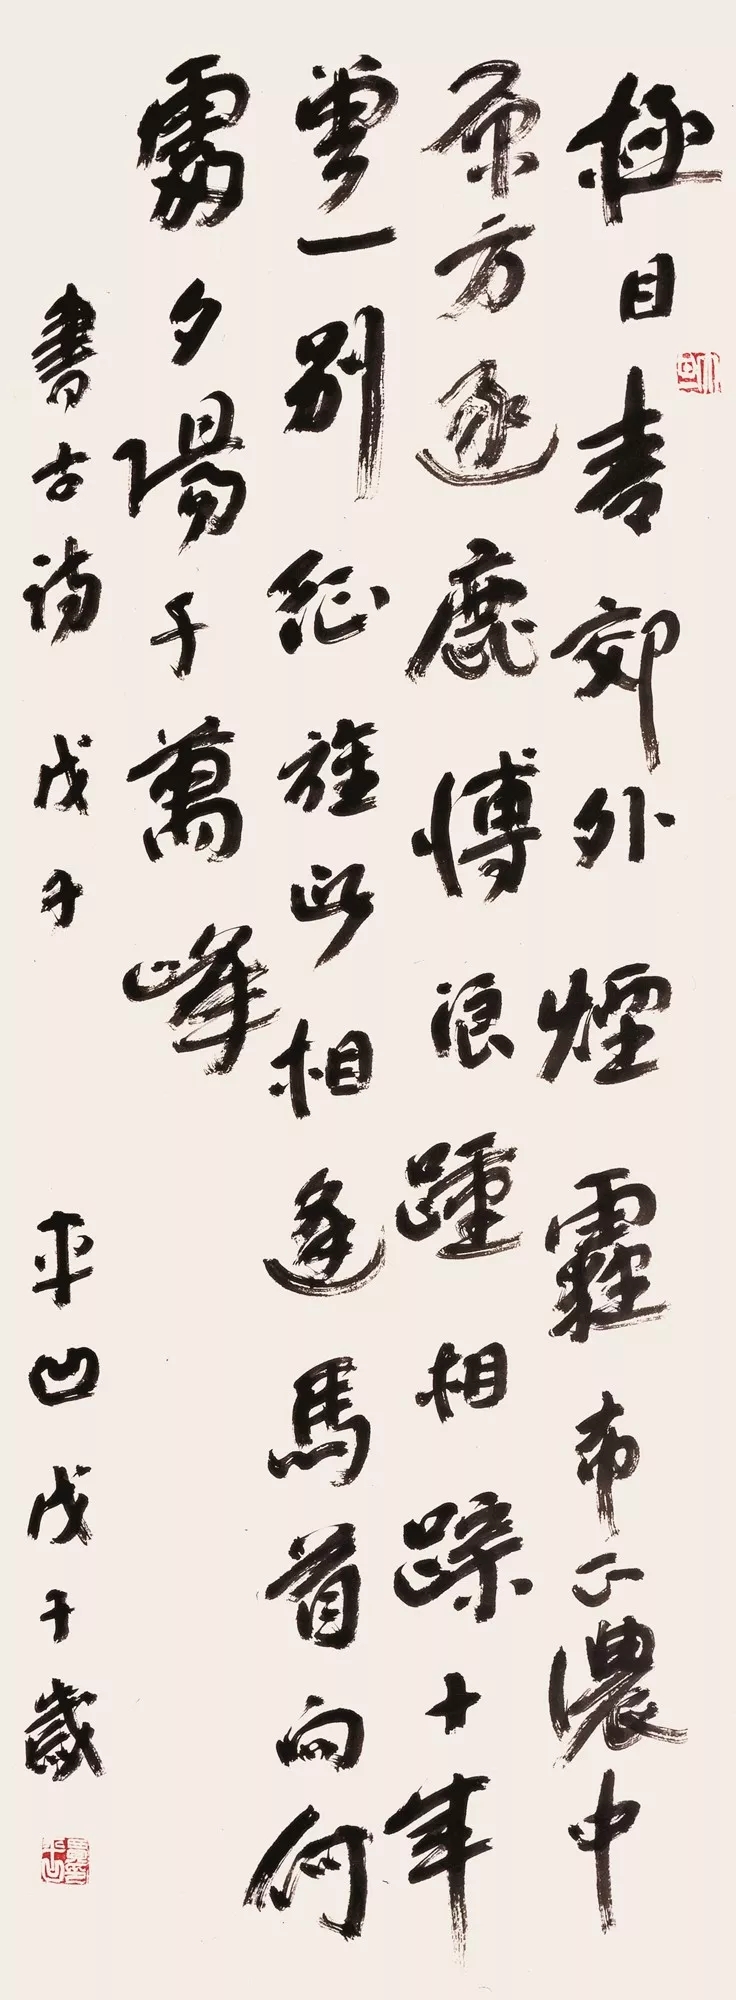 極目青郊外煙霾布正濃中
原方逐鹿愽浪踵相踪十年
曾一别征旅此相逢馬首向何
處夕陽千萬峰
書古詩 戊子 平凹 戊子歲